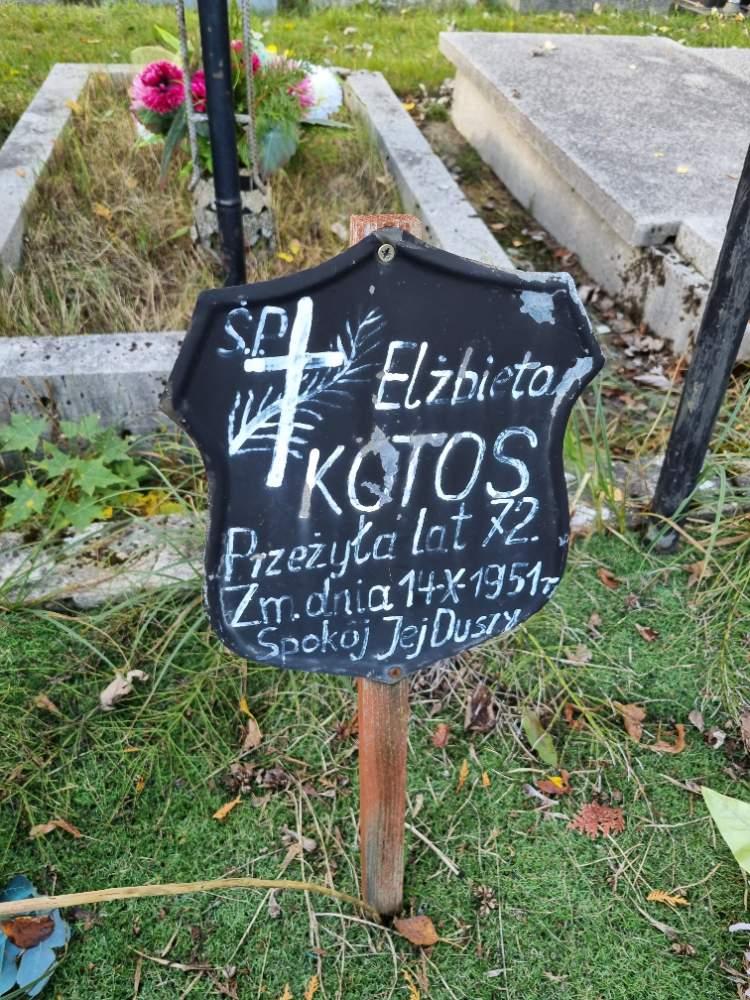 Ś.P. Elżbieta
KOTOS
Przeżyła lat 72.
Zm. dnia 14-X-1951 r
Spokój Jej Duszy